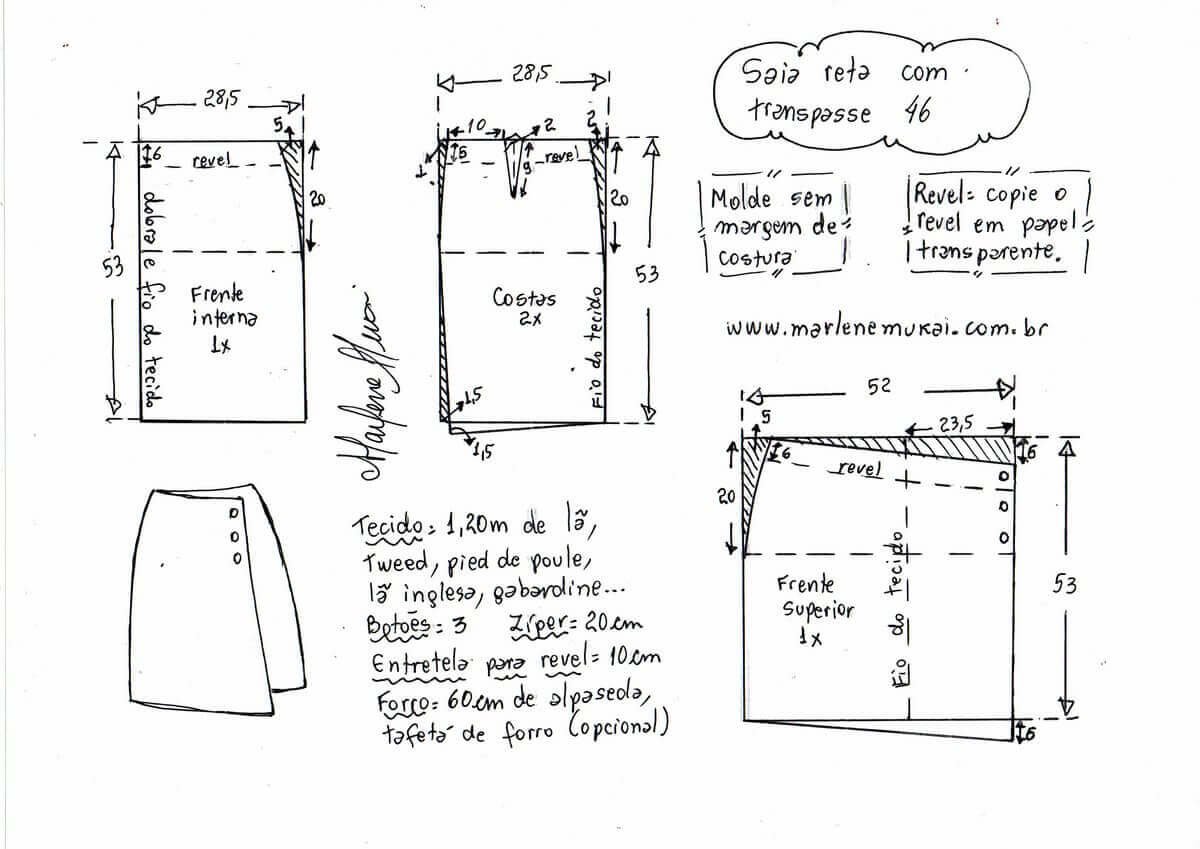 Saia reta com
transpasse 46
28,5
5
6
revel
20
53
dobra e fio do tecido
Frente
interna
1x
28,5
10
2
2
1
5
9
revel
20
53
Costas
2x
Fio do tecido
1,5
1,5
Molde sem
margem de
costura
Revel= copie o
revel em papel
transparente.
www.marlenemukai.com.br
Marlene Mukai
52
5
23,5
6
6
revel
20
53
Frente
Superior
1x
Fio do tecido
6
Tecido= 1,20m de lã,
tweed, pied de poule,
lã inglesa, gabardine...
Botões= 3 Zíper= 20cm
Entretela para revel= 10cm
Forro= 60cm de alpaseda,
tafetá de forro (opcional)